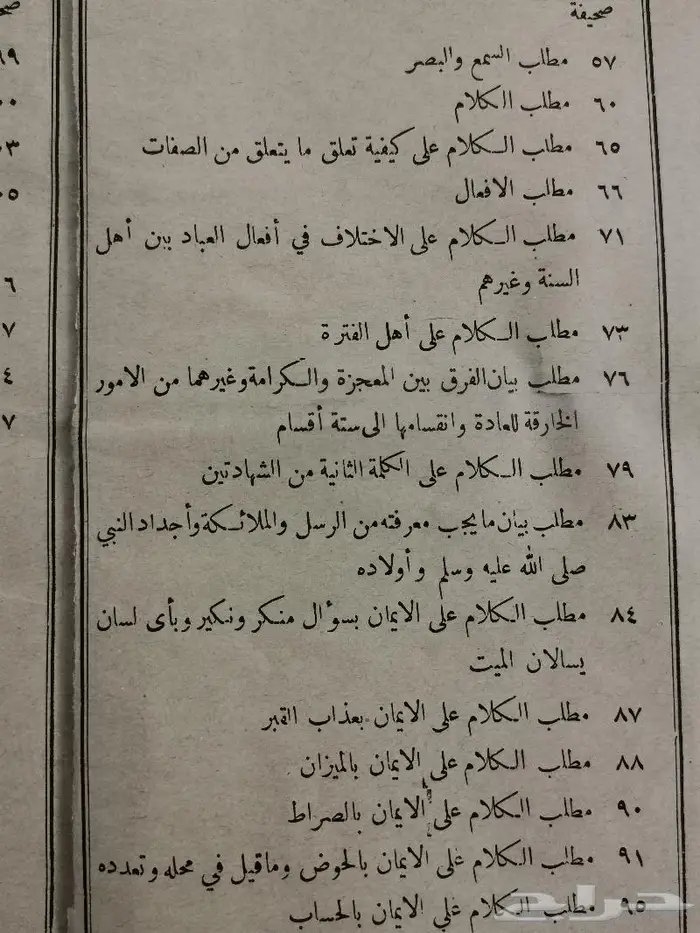 صحيفة
٥٧ مطلب السمع والبصر
٦٠ مطلب الكلام
٦٥ مطلب الكلام على كيفية تعلق ما يتعلق من الصفات
٦٦ مطلب الافعال
٧١ مطلب الكلام على الاختلاف في أفعال العباد بين أهل
السنة وغيرهم
٧٣ مطلب الكلام على أهل الفترة
٧٦ مطلب بيان الفرق بين المعجزة والكرامة وغيرهما من الامور
الخارقة للعادة وانقسامها الى ستة أقسام
٧٩ مطلب الكلام على الكلمة الثانية من الشهادتين
٨٣ مطلب بيان ما يجب معرفته من الرسل والملائكة وأجداد النبي
صلى الله عليه وسلم وأولاده
٨٤ مطلب الكلام على الايمان بسؤال منكر ونكير وبأى لسان
يسالان الميت
٨٧ مطلب الكلام على الايمان بعذاب القبر
٨٨ مطلب الكلام على الايمان بالميزان
٩٠ مطلب الكلام على الايمان بالصراط
٩١ مطلب الكلام على الايمان بالحوض وما قيل في محله وتعدده
٩٥ مطلب الكلام على الايمان بالحساب
حراج